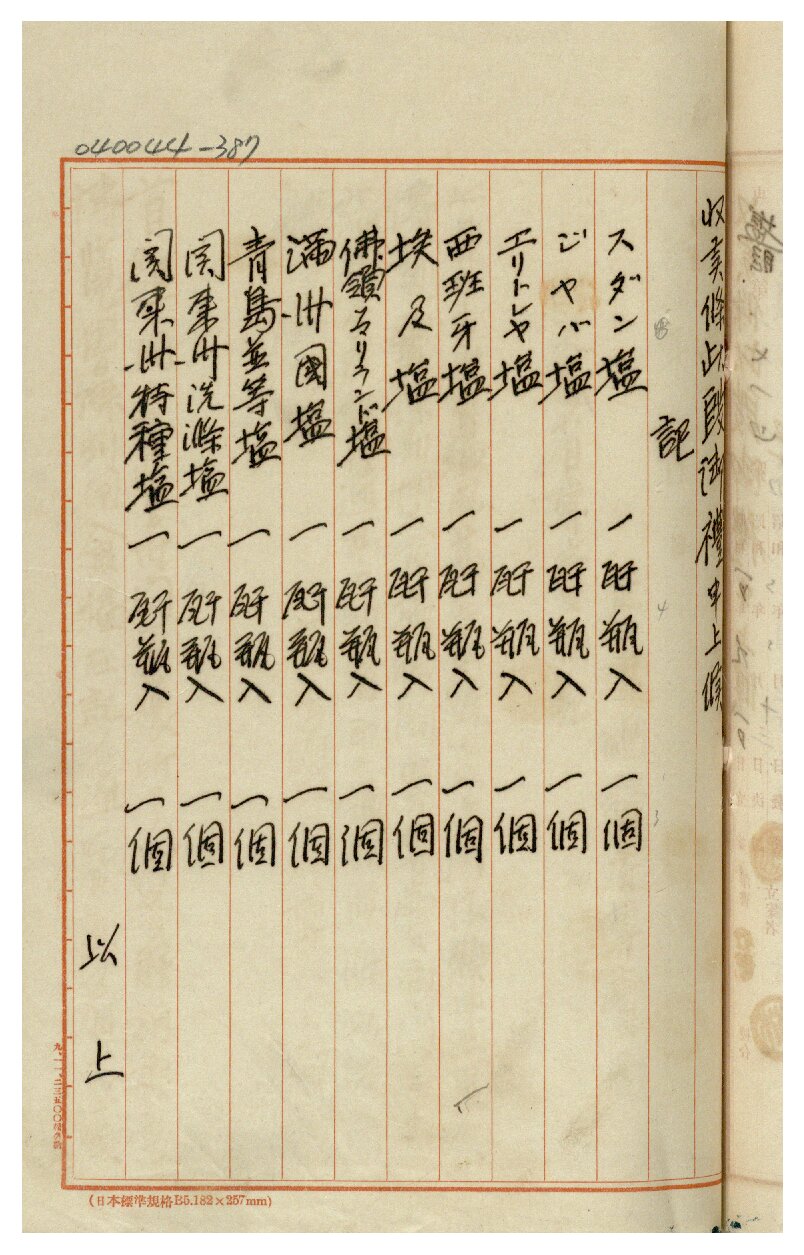 040044-387
収集候此段御禮申上候
記
スダン塩 一听瓶入 一個
ジャバ塩 一听瓶入 一個
エリトレヤ塩 一听瓶入 一個
西班牙塩 一听瓶入 一個
埃及塩 一听瓶入 一個
佛領ソマリランド塩 一听瓶入 一個
満州國塩 一听瓶入 一個
青島並等塩 一听瓶入 一個
関東州洗滌塩 一听瓶入 一個
関東州特種塩 一听瓶入 一個
以上
(日本標準規格B5.182×257mm)